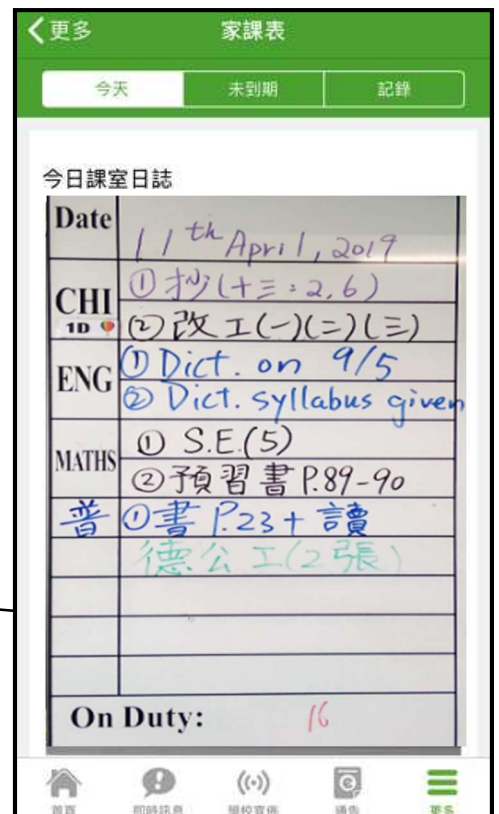 更多 家課表
今天 未到期 記錄
今日課室日誌
Date 11th April, 2019
CHI ① 抄(十三:2,6)
1D ② 改工(一)(二)(三)
ENG ① Dict. on 9/5
② Dict. syllabus given
MATHS ① S.E.(5)
② 預習書 P.89-90
普 ① 書 P.23 + 讀
德公工(2張)
On Duty: 16
首頁 即時訊息 學校宣佈 通告 更多